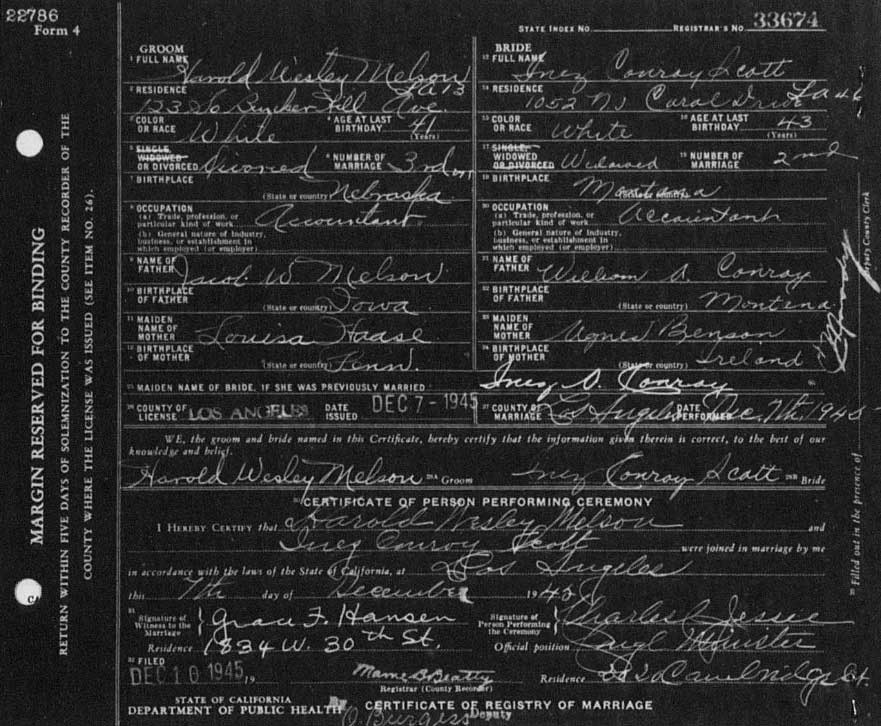 22786
Form 4
STATE INDEX NO.
REGISTRAR'S NO. 33674
GROOM
1 FULL NAME Harold Wesley Melson
2 RESIDENCE LA 13
123 So Bunker Hill Ave.
3 COLOR OR RACE White
4 AGE AT LAST BIRTHDAY 41 (Years)
5 SINGLE, WIDOWED OR DIVORCED Divorced
6 NUMBER OF MARRIAGE 3rd
7 BIRTHPLACE (State or country) Nebraska
8 OCCUPATION
(a) Trade, profession, or particular kind of work Accountant
(b) General nature of industry, business, or establishment in which employed (or employer)
9 NAME OF FATHER Jacob W. Melson
10 BIRTHPLACE OF FATHER (State or country) Iowa
11 MAIDEN NAME OF MOTHER Louisa Haase
12 BIRTHPLACE OF MOTHER (State or country) Penn.
BRIDE
13 FULL NAME Inez Conroy Scott
14 RESIDENCE LA 46
1052 N Carol Drive
15 COLOR OR RACE White
16 AGE AT LAST BIRTHDAY 43 (Years)
17 SINGLE, WIDOWED OR DIVORCED Widowed
18 NUMBER OF MARRIAGE 2nd
19 BIRTHPLACE (State or country) Montana
20 OCCUPATION
(a) Trade, profession, or particular kind of work Accountant
(b) General nature of industry, business, or establishment in which employed (or employer)
21 NAME OF FATHER William A. Conroy
22 BIRTHPLACE OF FATHER (State or country) Montena
23 MAIDEN NAME OF MOTHER Agnes Benson
24 BIRTHPLACE OF MOTHER (State or country) Ireland
25 MAIDEN NAME OF BRIDE, IF SHE WAS PREVIOUSLY MARRIED: Inez A. Conroy
26 COUNTY OF LICENSE LOS ANGELES DATE ISSUED DEC 7 - 1945
27 COUNTY OF MARRIAGE Los Angeles DATE PERFORMED Dec. 7th, 1945
WE, the groom and bride named in this Certificate, hereby certify that the information given therein is correct, to the best of our
knowledge and belief.
Harold Wesley Melson 28A Groom Inez Conroy Scott 28B Bride
CERTIFICATE OF PERSON PERFORMING CEREMONY
I HEREBY CERTIFY that Harold Wesley Melson and
Inez Conroy Scott were joined in marriage by me
in accordance with the laws of the State of California, at Los Angeles
this 7th day of December 1945
31 Signature of Witness to the Marriage Grace F. Hansen
Residence 1834 W. 30th St.
Signature of Person Performing the Ceremony Charles C Jessie
Official position Minister
32 FILED
DEC 10 1945, 19
Mame B Beatty
Registrar (County Recorder)
Residence
STATE OF CALIFORNIA
DEPARTMENT OF PUBLIC HEALTH
CERTIFICATE OF REGISTRY OF MARRIAGE
O. Burgess Deputy
MARGIN RESERVED FOR BINDING
RETURN WITHIN FIVE DAYS OF SOLEMNIZATION TO THE COUNTY RECORDER OF THE
COUNTY WHERE THE LICENSE WAS ISSUED (SEE ITEM NO. 26).
Filled out in the presence of
Deputy County Clerk